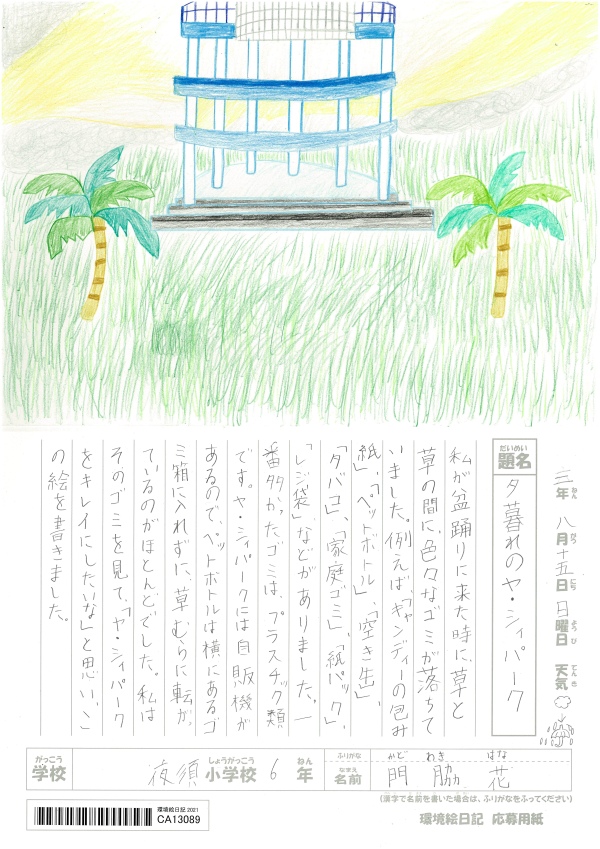 三年 八月十五日 日曜日 天気
ねん がつ にち ようび てんき
だいめい
題名
夕暮れのヤ・シィパーク
私が盆踊りに来た時に、草と
草の間に、色々なゴミが落ちて
いました。例えば、「キャンディーの包み
紙」、「ペットボトル」、「空き缶」、
「タバコ」、「家庭ゴミ」、「紙パック」、
「レジ袋」などがありました。一
番多かったゴミは、プラスチック類
です。ヤ・シィパークには自販機が
あるので、ペットボトルは横にあるゴ
ミ箱に入れずに、草むらに転がっ
ているのがほとんどでした。私は
そのゴミを見て、「ヤ・シィパーク
をキレイにしたいな」と思い、こ
の絵を書きました。
がっこう
学校
夜須 小学校 6 年
しょうがっこう ねん
ふりがな
かど わき はな
なまえ
名前
門脇 花
(漢字で名前を書いた場合は、ふりがなをふってください)
環境絵日記 2021
CA13089
環境絵日記 応募用紙